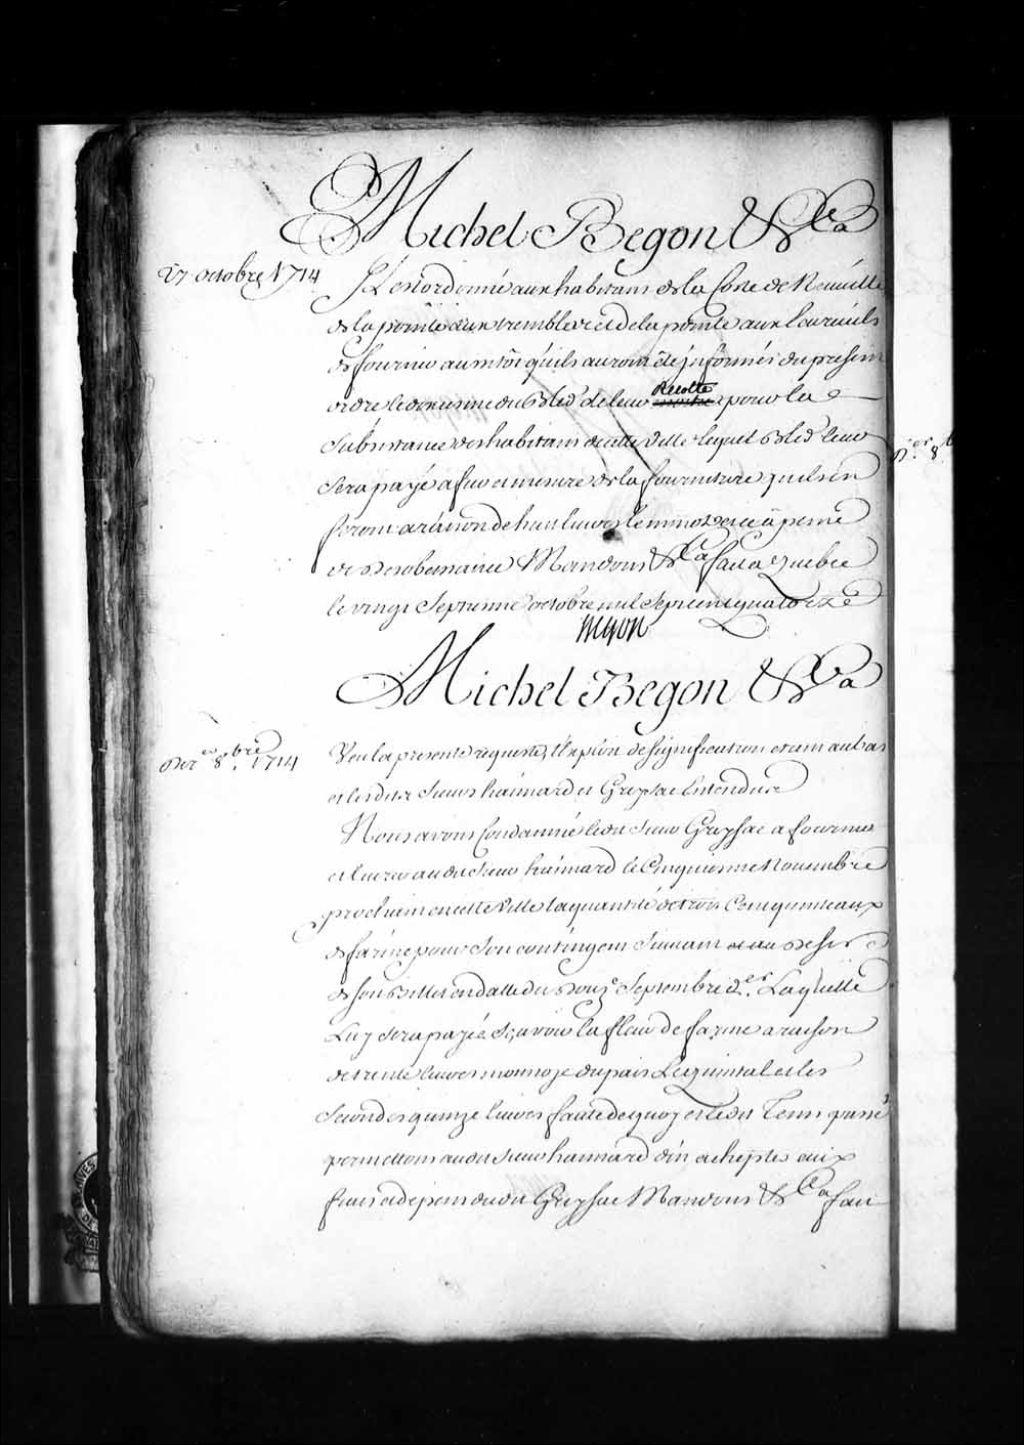 Michel Begon &ca
27 octobre 1714
Il est ordonné aux habitans de la Coste de Neuville
de la pointe aux trembles et de la pointe aux Ecureuils
de fournir aussitôt qu'ils auront été informés du present
ordre le douzieme du Bled de leur Recolte pour la
Subsistance des habitans de cette Ville lequel Bled leur
Sera payé a fur et mesure de la fourniture qu'ils en
feront a raison de huit livres le minot et ce à peine
de desobeissance Mandons &ca fait a Quebec
le vingt Septieme octobre mil Sept cent quatorze
Begon
Michel Begon &ca
Der 8.bre 1714
Veu la presente requeste, l'Exploit de signification etant au bas
et les dits Sieurs haimard et Grepsac Entendus
Nous avons Condamné ledit Sieur Grepsac a fournir
et livrer audit Sieur haimard le Cinquieme Novembre
prochain en cette Ville la quantité de trois Cent quinteaux
de farine pour Son contingent Suivant et au desir
de son Billet en datte du douze Septembre der. Laquelle
Luy sera payée Sçavoir la fleur de farine a raison
de trente livres monnoye du pais Le quintal et les
Secondes quinze livres faute de quoy et ledit Tems passé
permettons audit Sieur haimard d'en achepter aux
frais et depens dudit Grepsac Mandons &ca fait